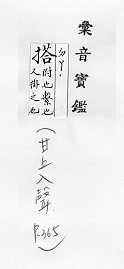 彙音寶鑑
ㄉㄚˋ
搭
附也繫也
又掛之也
(甘上入聲
P.365)